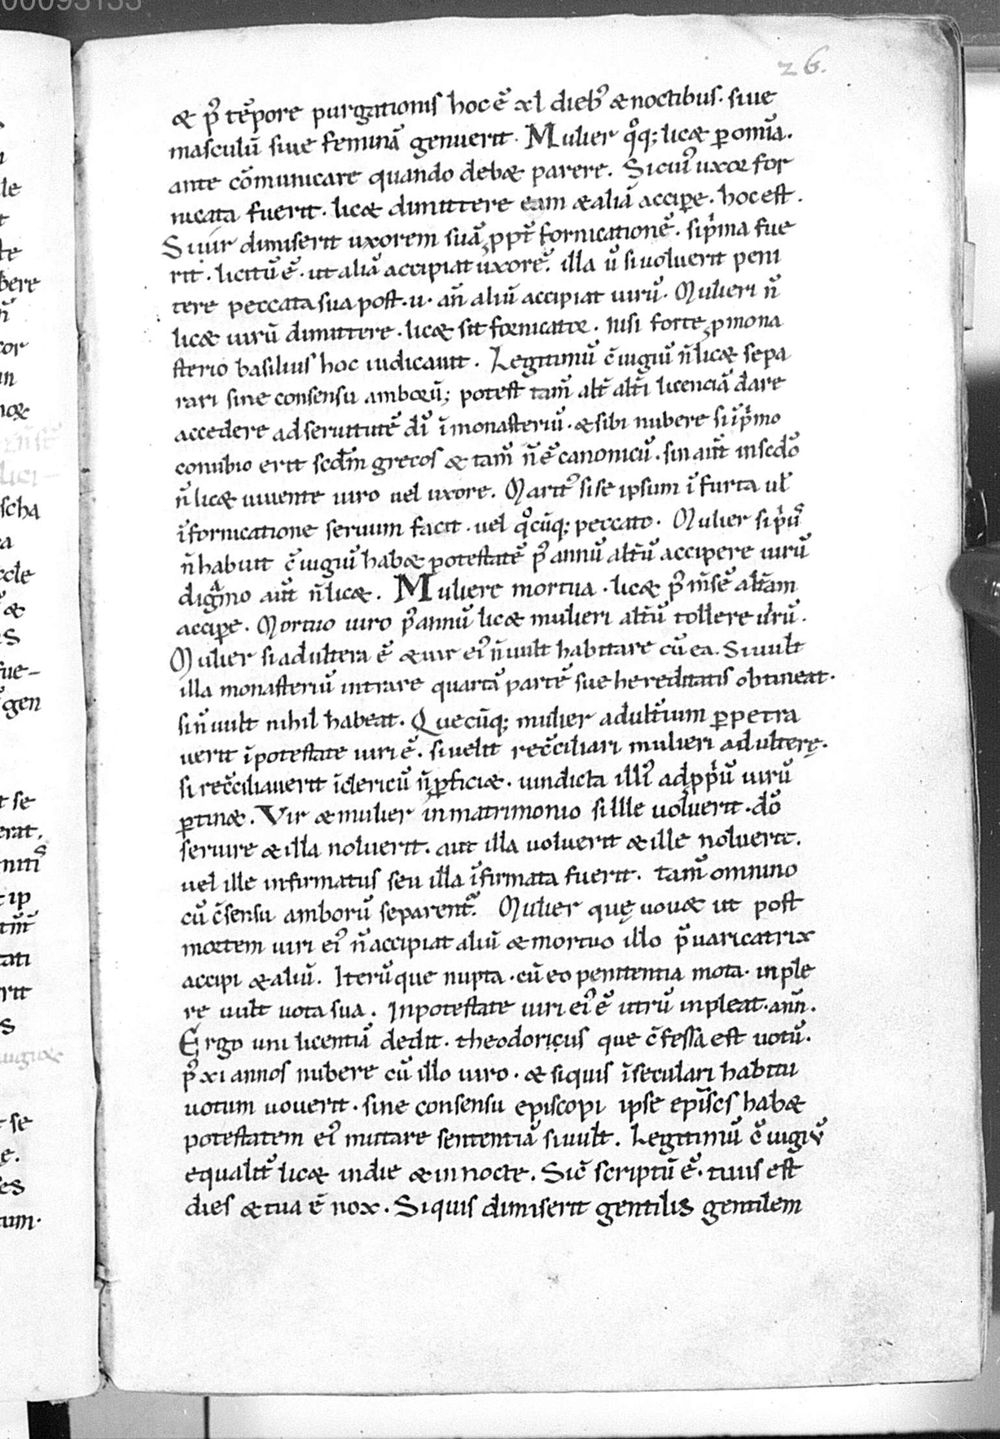 00093133
26.
& p᷒ tēpore purgationis hoc ē xl dieb; & noctibus. siue
masculū siue feminā genuerit. Mulier qͦq; lic& ꝑ omīa.
ante cōmunicare quando deb& parere. Si cui᷒ uxor for
nicata fuerit. lic& dimittere eam & aliā accipe. hoc est.
Si uir dimiserit uxorem suā ꝓpt̄ fornicationē. si p̍ma fue
rit. licitū ē. ut aliā accipiat uxorē. illa ū si uoluerit peni
tere peccata sua post. u. an̄ aliū accipiat uirū. Mulieri n̄
lic& uirū dimittere. lic& sit fornicator. nisi forte ꝓ mona
sterio basilius hoc iudicauit. Legitimū c̄iugiū n̄ lic& sepa
rari sine consensu amborū; potest tam̄ alt̄ alt̄i licenciā dare
accedere ad seruitutē dī ī monasteriū. & sibi nubere si ī p̍mo
conubio erit scdm̄ grecos & tam̄ n̄ ē canonicū. sin aut̄ in scdō
n̄ lic& uiuente uiro uel uxore. Marit᷒ si se ipsum ī furta ul̄
ī fornicatione seruum facit. uel qͦcūq; peccato. Mulier si p̍us
n̄ habuit c̄iugiū hab& potestatē p᷒ annū alt̄ū accipere uirū
digamo aut̄ n̄ lic&. Muliere mortua. lic& p᷒ m̄sē alt̄am
accipe. Mortuo uiro p᷒ annū lic& mulieri alt̄ū tollere uirū.
Mulier si adultera ē & uir ei᷒ n̄ uult habitare cū ea. Si uult
illa monasteriū intrare quartā partē sue hereditatis obtineat.
si n̄ uult nihil habeat. Quecūq; mulier adult̄ium ꝑpetra
uerit ī potestate uiri ē. si uelit rec̄ciliari mulieri adulterę.
si rec̄ciliauerit ī clericū n̄ ꝓfici&. uindicta illi᷒ ad ꝓp̍ū uirū
ꝑtin&. Vir & mulier in matrimonio si ille uoluerit. dō
seruire & illa noluerit. aut illa uoluerit & ille noluerit.
uel ille infirmatus seu illa īfirmata fuerit. tam̄ omnino
cū c̄sensu amborū separent᷒. Mulier quę uou& ut post
mortem uiri ei᷒ n̄ accipiat aliū & mortuo illo p̄uaricatrix
accipi & aliū. Iterūque nupta. cū eo penitentia mota. inple
re uult uota sua. In potestate uiri ei᷒ ē utrū inpleat. ann̄.
Ergo uni licentiā dedit. theodoricus que c̄fessa est uotū.
p᷒ xi annos nubere cū illo uiro. & siquis ī seculari habitu
uotum uouerit. sine consensu episcopi ipse epīscs hab&
potestatem ei᷒ mutare sententiā si uult. Legitimū c̄iugiū
equalit̄ lic& in die & in nocte. Sic̄ scriptū ē. tuus est
dies & tua ē nox. Siquis dimiserit gentilis gentilem